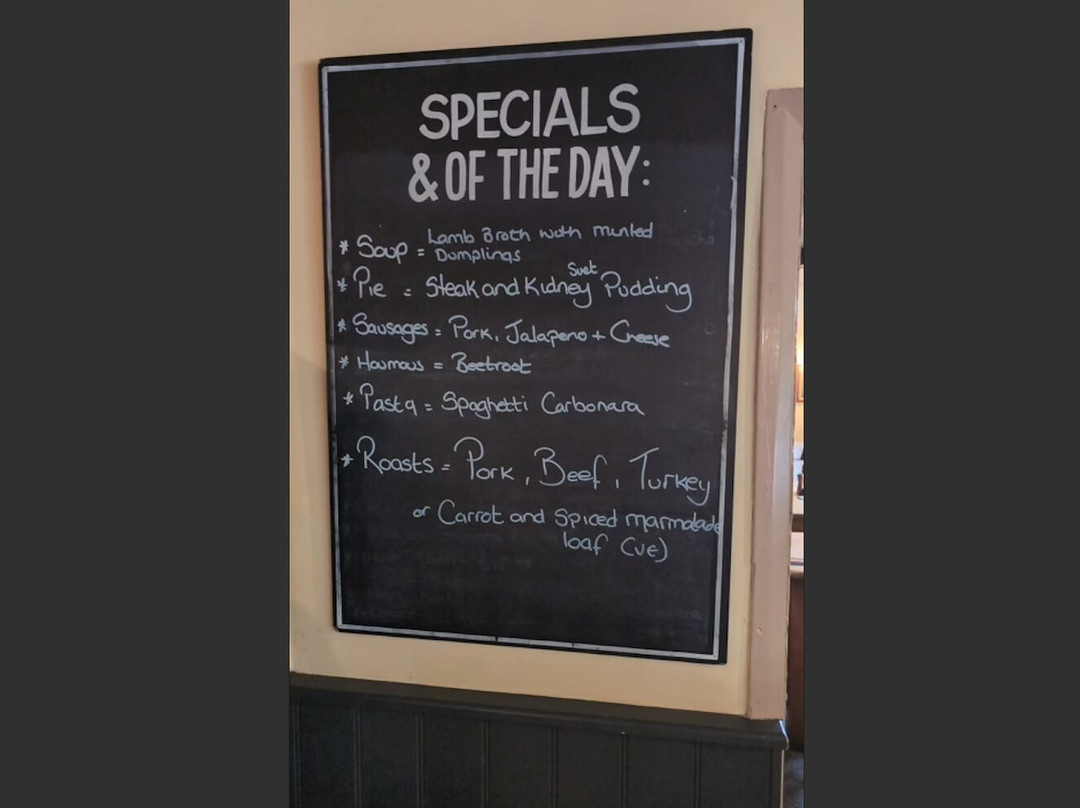 SPECIALS
& OF THE DAY:
* Soup = Lamb Broth with munted
Dumplings
* Pie = Steak and Kidney Suet Pudding
* Sausages = Pork, Jalapeno + Cheese
* Houmous = Beetroot
* Pasta = Spaghetti Carbonara
* Roasts = Pork, Beef, Turkey
or Carrot and Spiced marmalade
loaf (ve)